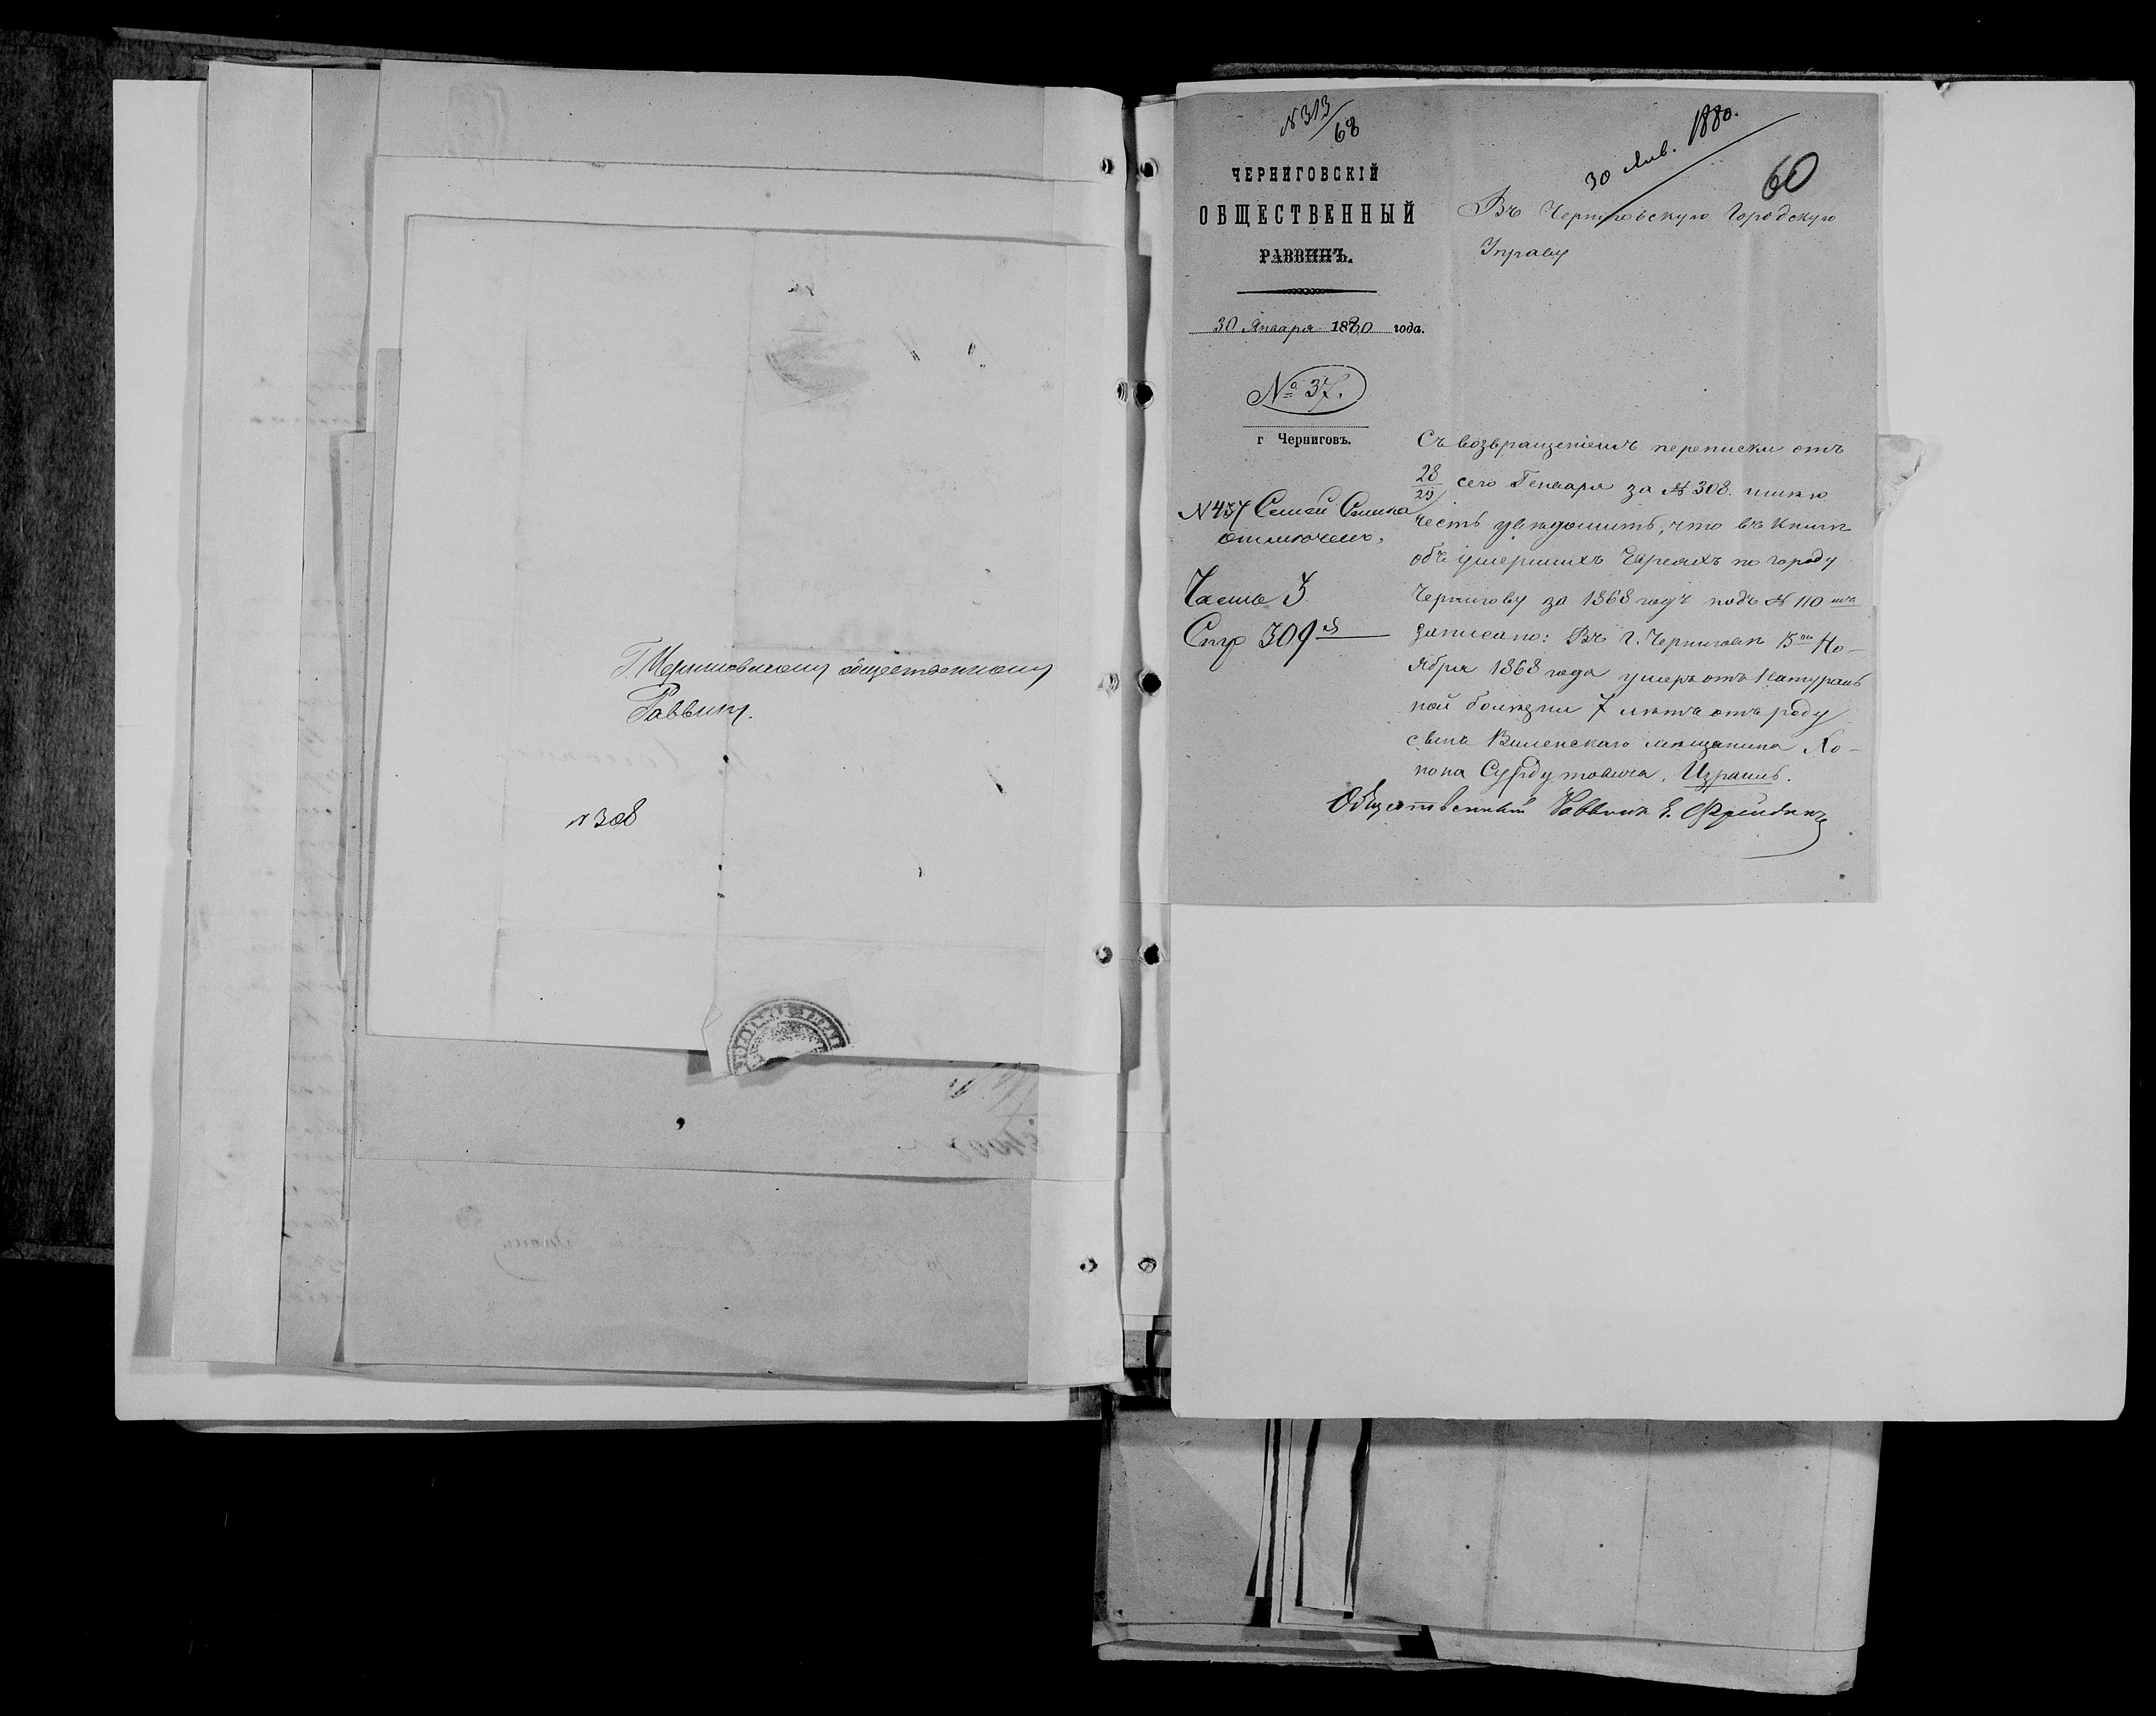 Г. Черниговскому общественному
Раввину.
№ 308
№ 313/68
30 Янв. 1880.
60
ЧЕРНИГОВСКІЙ
ОБЩЕСТВЕННЫЙ
РАВВИНЪ.
30 Января 1880 года.
№ 37.
г Черниговъ.
Въ Черниговскую Городскую
Управу
№ 437
отмѣчено.
Часть 3
Стр 309
Съ возвращеніемъ переписки отъ
28/29 сего Генваря за № 308. имѣю
честь увѣдомить, что въ книгѣ
объ умершихъ Евреяхъ по городу
Чернигову за 1868 годъ подъ № 110
записано: Въ г. Черниговѣ 15го Но-
ября 1868 года умеръ отъ Натураль
ной болѣзни 7 лѣтъ отъ роду
сынъ Виленскаго мѣщанина Хо-
нона Сурдутовича, Израиль.
Общественный Раввинъ Е. Фрейдинъ